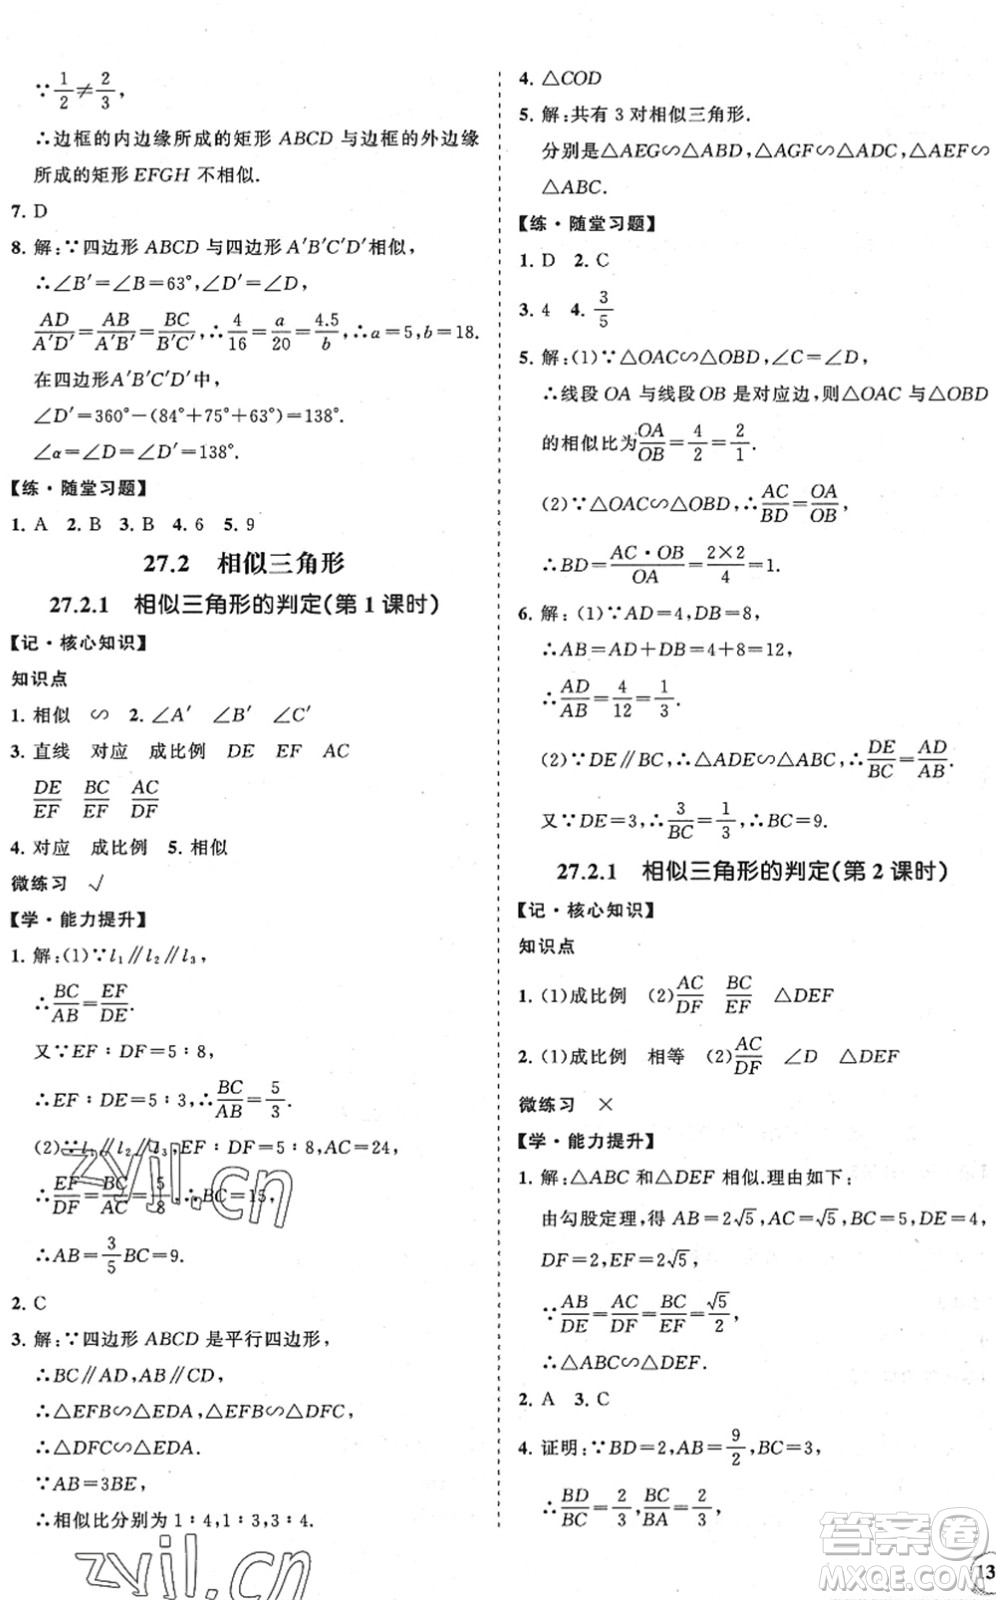 ∵1/2≠2/3,
∴边框的内边缘所成的矩形 ABCD 与边框的外边缘
所成的矩形 EFGH 不相似.
7. D
8. 解:∵四边形 ABCD 与四边形 A′B′C′D′相似,
∴∠B′=∠B=63°,∠D′=∠D,
AD/A′D′=AB/A′B′=BC/B′C′,∴4/16=a/20=4.5/b,∴a=5,b=18.
在四边形A′B′C′D′中,
∠D′=360°−(84°+75°+63°)=138°.
∠α=∠D=∠D′=138°.
【练·随堂习题】
1. A 2. B 3. B 4. 6 5. 9
27.2 相似三角形
27.2.1 相似三角形的判定(第 1 课时)
【记·核心知识】
知识点
1. 相似 ∽ 2. ∠A′ ∠B′ ∠C′
3. 直线 对应 成比例 DE EF AC
DE/EF BC/EF AC/DF
4. 对应 成比例 5. 相似
微练习 √
【学·能力提升】
1. 解:(1)∵l₁∥l₂∥l₃,
∴BC/AB=EF/DE.
又∵EF∶DF=5∶8,
∴EF∶DE=5∶3,∴BC/AB=5/3.
(2)∵l₁∥l₂∥l₃,EF∶DF=5∶8,AC=24,
∴EF/DF=BC/AC=5/8,∴BC=15,
∴AB=3/5BC=9.
2. C
3. 解:∵四边形 ABCD 是平行四边形,
∴BC∥AD,AB∥CD,
∴△EFB∽△EDA,△EFB∽△DFC,
∴△DFC∽△EDA.
∵AB=3BE,
∴相似比分别为 1∶4,1∶3,3∶4.
4. △COD
5. 解:共有 3 对相似三角形.
分别是△AEG∽△ABD,△AGF∽△ADC,△AEF∽
△ABC.
【练·随堂习题】
1. D 2. C
3. 4 4. 3/5
5. 解:(1)∵△OAC∽△OBD,∠C=∠D,
∴线段 OA 与线段 OB 是对应边,则△OAC 与△OBD
的相似比为OA/OB=4/2=2/1.
(2)∵△OAC∽△OBD,∴AC/BD=OA/OB,
∴BD=AC·OB/OA=2×2/4=1.
6. 解:(1)∵AD=4,DB=8,
∴AB=AD+DB=4+8=12,
∴AD/AB=4/12=1/3.
(2)∵DE∥BC,∴△ADE∽△ABC,∴DE/BC=AD/AB.
又∵DE=3,∴3/BC=1/3,∴BC=9.
27.2.1 相似三角形的判定(第 2 课时)
【记·核心知识】
知识点
1. (1)成比例 (2)AC/DF BC/EF △DEF
2. (1)成比例 相等 (2)AC/DF ∠D △DEF
微练习 ×
【学·能力提升】
1. 解:△ABC 和△DEF 相似.理由如下:
由勾股定理,得 AB=2√5,AC=√5,BC=5,DE=4,
DF=2,EF=2√5.
∵AB/DE=AC/DF=BC/EF=√5/2,
∴△ABC∽△DEF.
2. A 3. C
4. 证明:∵BD=2,AB=9/2,BC=3,
∴BD/BC=2/3,BC/BA=2/3,
zyjl.cn
zyjl.cn
答案卷
MXQE.COM
13